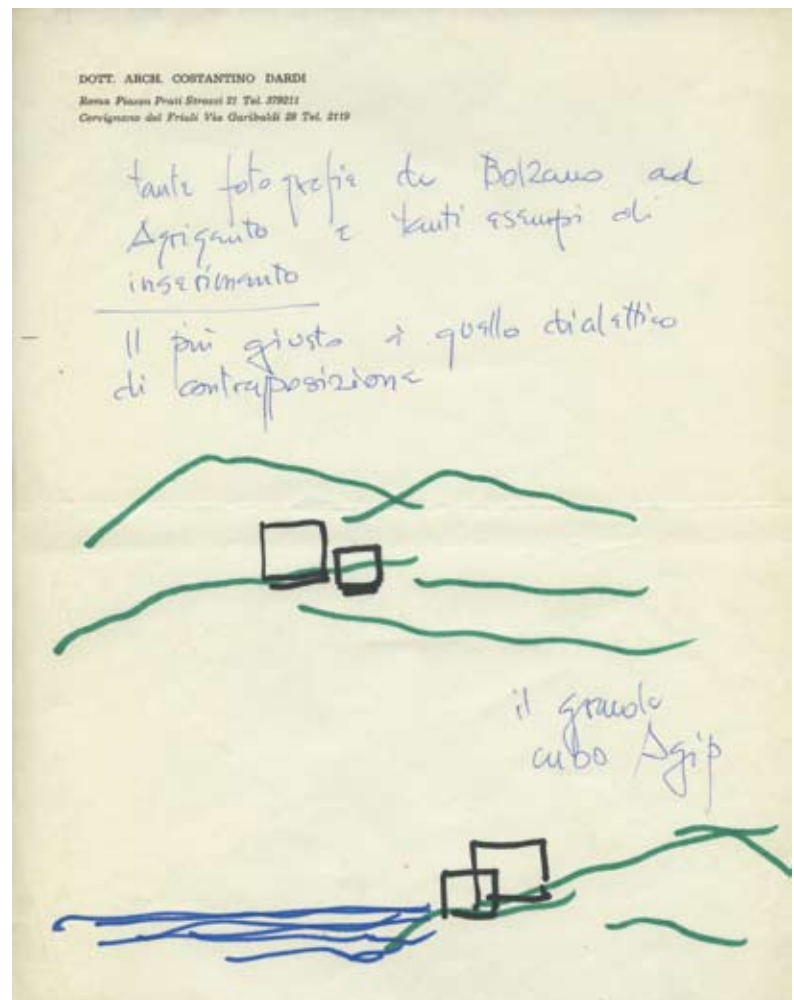 DOTT. ARCH. COSTANTINO DARDI
Roma Piazza Prati Strozzi 21 Tel. 379211
Cervignano del Friuli Via Garibaldi 28 Tel. 2119
tante fotografie da Bolzano ad
Agrigento e tanti esempi di
inserimento
Il più giusto è quello dialettico
di contrapposizione
il grande
cubo Agip